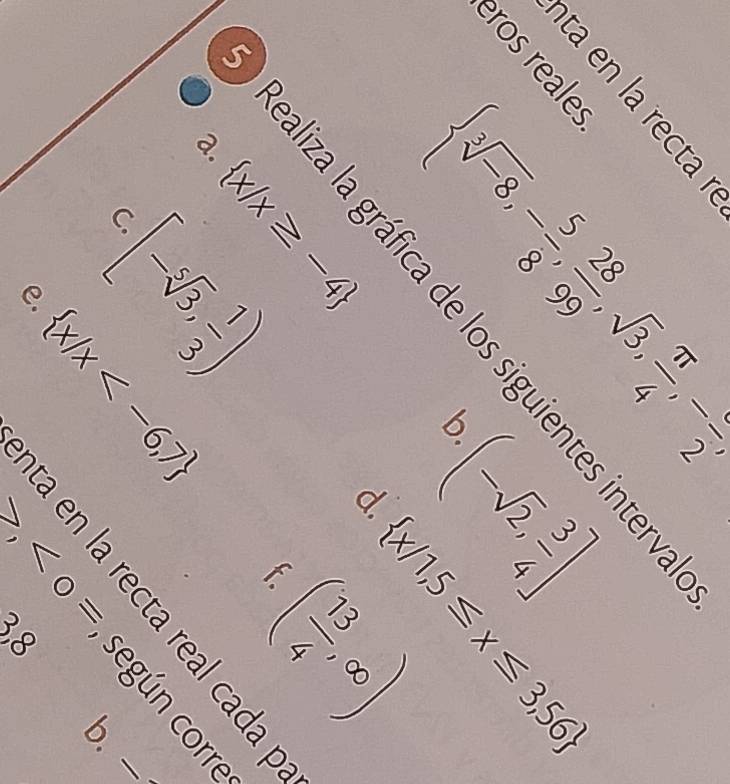 enta en la recta rea
eros reales.
{∛-8, -5/8, 28/99, √3, π/4, -/2,
5 Realiza la gráfica de los siguientes intervalos.
a. {x/x ≥ -4}
b. (-√2, 3/4]
c. [-⁵√3, 1/3)
d. {x/1,5 ≤ x ≤ 3,56}
e. {x/x < -6,7}
f. (13/4, ∞)
senta en la recta real cada par
>, < o =, según corres
3,8
b. -